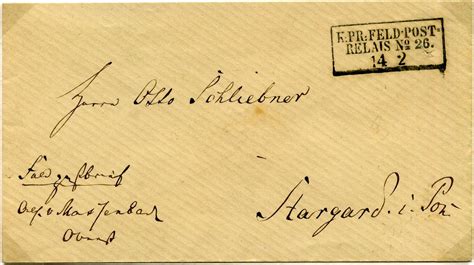 K.PR:FELD-POST-
RELAIS No 26.
14 2
Herrn Otto Schliebner
Feldpostbrief
v.
Oberst
Stargard i. Pom